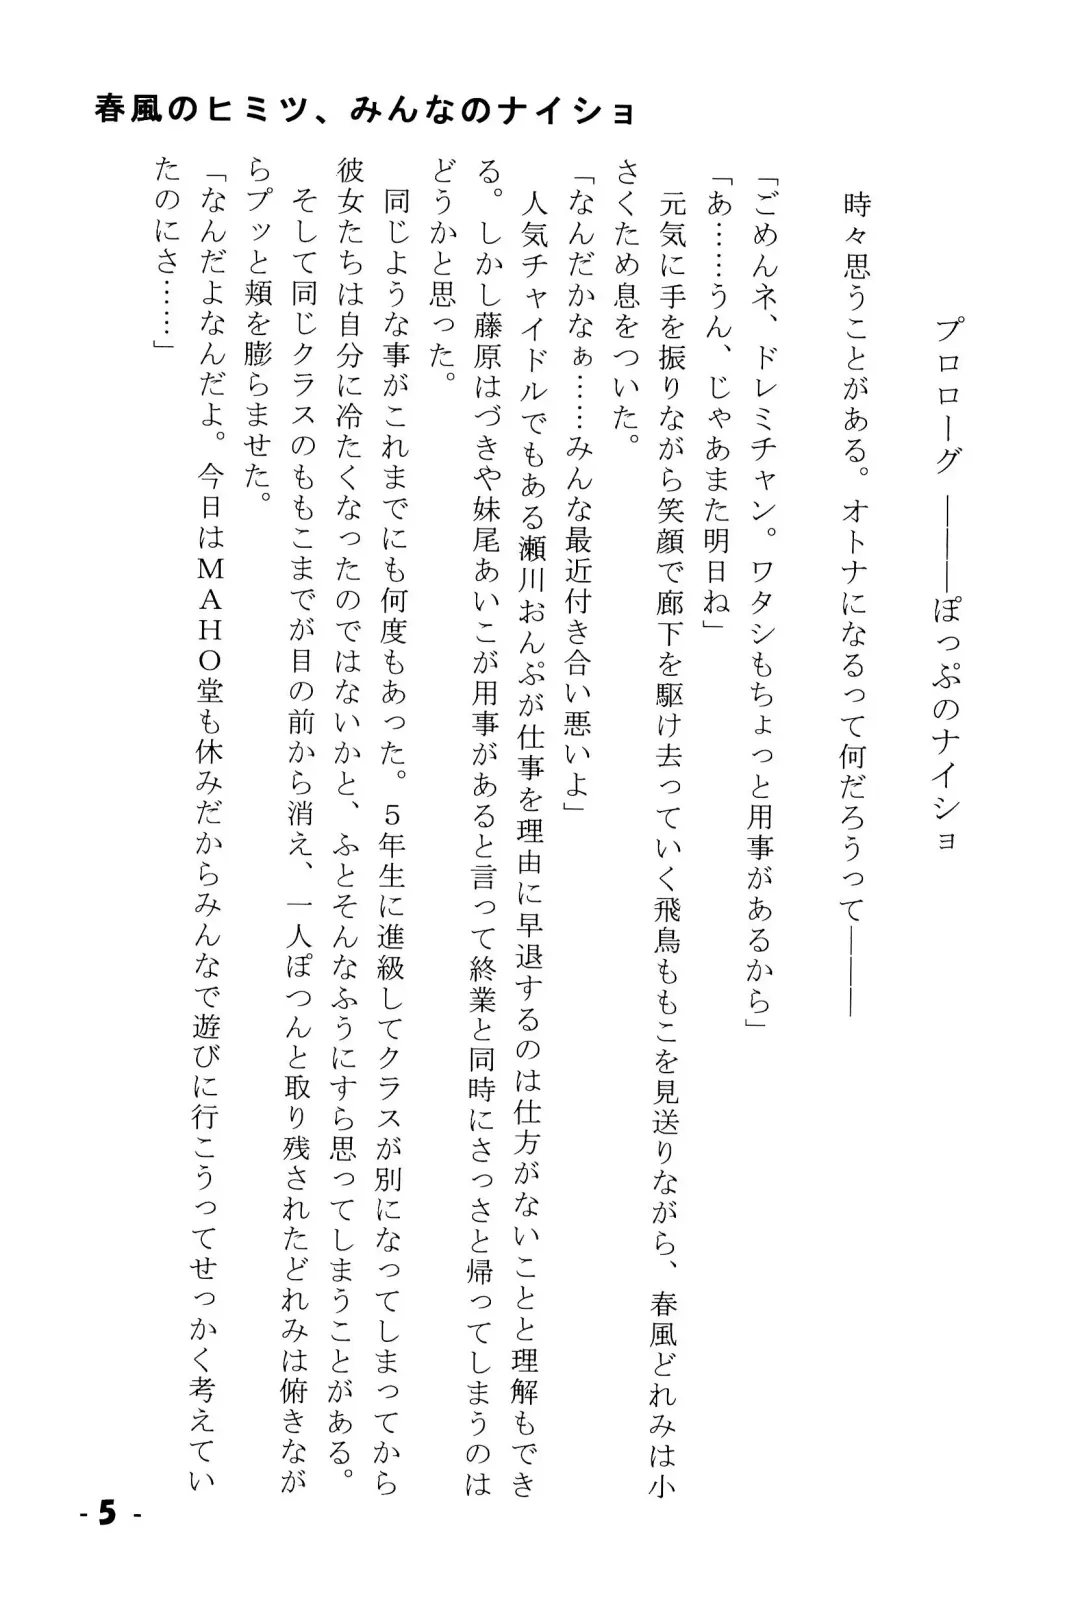 春風のヒミツ、みんなのナイショ
プロローグ ―――ぽっぷのナイショ
時々思うことがある。オトナになるって何だろうって―――
「ごめんネ、ドレミチャン。ワタシもちょっと用事があるから」
「あ……うん、じゃあまた明日ね」
元気に手を振りながら笑顔で廊下を駆け去っていく飛鳥ももこを見送りながら、春風どれみは小
さくため息をついた。
「なんだかなぁ……みんな最近付き合い悪いよ」
人気チャイドルでもある瀬川おんぷが仕事を理由に早退するのは仕方がないことと理解もでき
る。しかし藤原はづきや妹尾あいこが用事があると言って終業と同時にさっさと帰ってしまうのは
どうかと思った。
同じような事がこれまでにも何度もあった。５年生に進級してクラスが別になってしまってから
彼女たちは自分に冷たくなったのではないかと、ふとそんなふうにすら思ってしまうことがある。
そして同じクラスのももこまでが目の前から消え、一人ぽつんと取り残されたどれみは俯きなが
らプッと頬を膨らませた。
「なんだよなんだよ。今日はＭＡＨＯ堂も休みだからみんなで遊びに行こうってせっかく考えてい
たのにさ……」
- 5 -